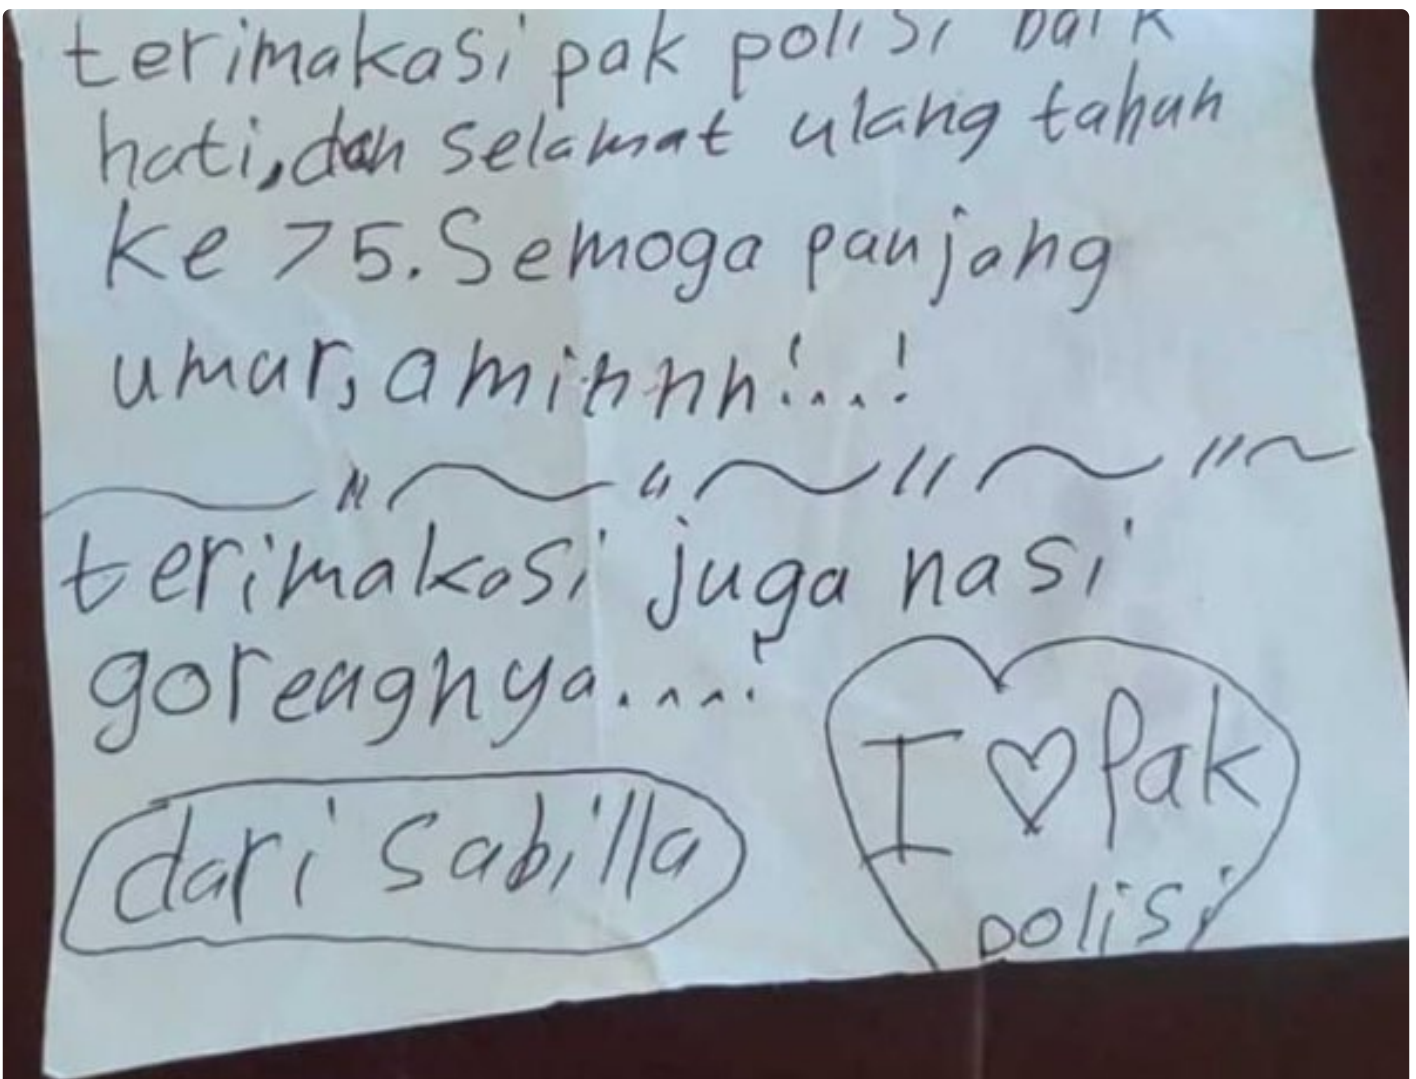 terimakasi pak polisi baik
hati, dan selamat ulang tahun
ke 75. Semoga panjang
umur, aminnn!...!
terimakasi juga nasi
goreagnya....!
dari Sabilla
I ♡ Pak
polisi